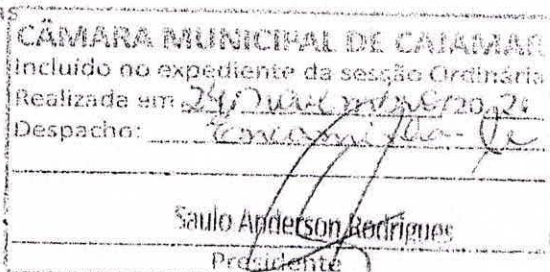 CÂMARA MUNICIPAL DE CAJAMAR
Incluído no expediente da sessão Ordinária
Realizada em 24/ /20 21
Despacho: Encaminha-se
Saulo Anderson Rodrigues
Presidente